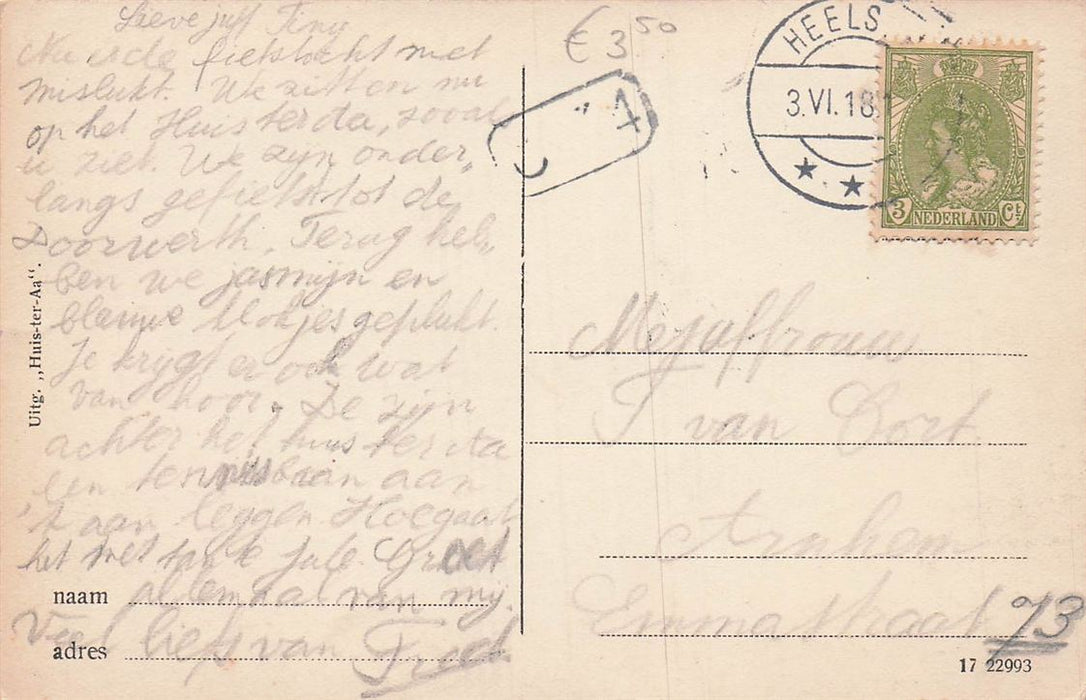 Lieve juff Tiny
Nu is de fietstocht met
mislukt. We zitten nu
op het Huis ter Aa, zooals
u ziet. We zijn onder„
langs gefietst tot de
Doorwerth. Terug heb„
ben we jasmijn en
blauwe klokjes geplukt.
Je krijgt er ook wat
van hoor. Ze zijn
achter het huis ter Aa
een tennisbaan aan
't aan leggen. Hoe gaat
het met tante Jule. Groet
allemaal van mij.
Veel liefs van
naam
adres
Uitg. „Huis-ter-Aa“.
€ 3 50
HEELS
3.VI.18
3 NEDERLAND Ct
Mejuffrouw
T van Oort
Arnhem
Emmastraat 73
17 22993